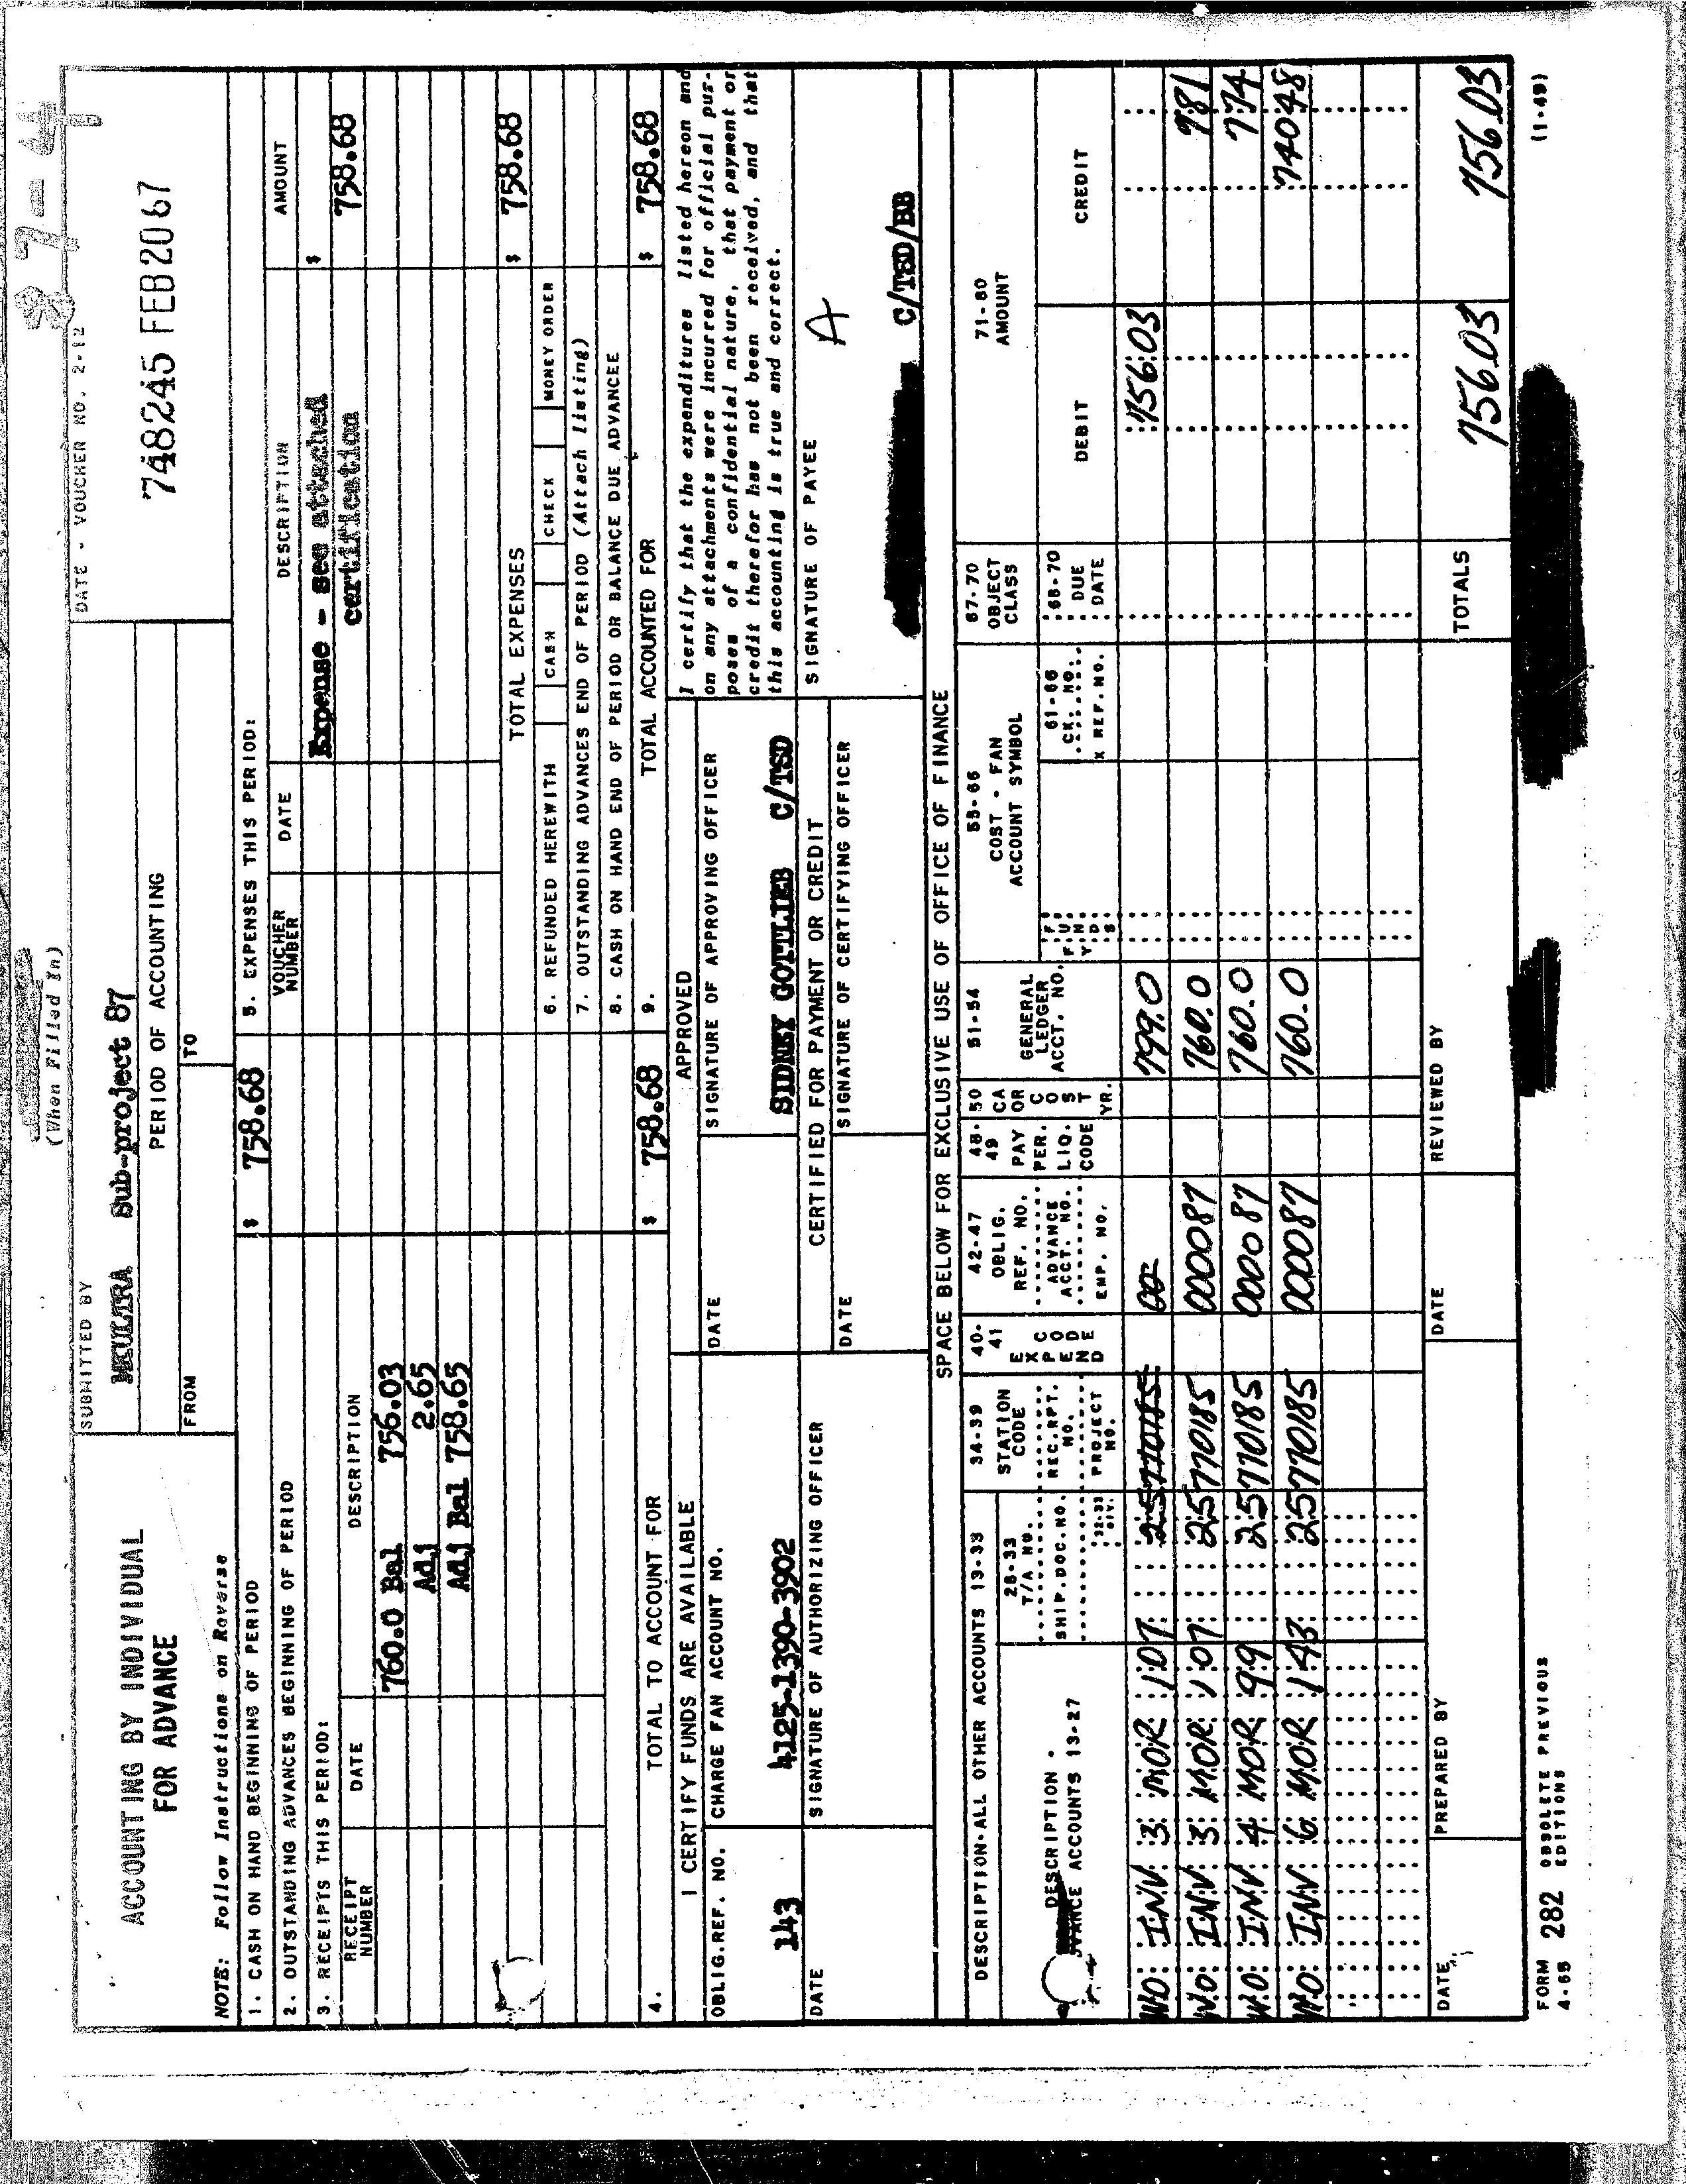 87-44
(When Filled In)
ACCOUNTING BY INDIVIDUAL
FOR ADVANCE
SUBMITTED BY
MKULTRA Sub-project 87
PERIOD OF ACCOUNTING
FROM
TO
DATE - VOUCHER NO. 2-12
748245 FEB 20 67
NOTE: Follow Instructions on Reverse
1. CASH ON HAND BEGINNING OF PERIOD
$ 758.68
2. OUTSTANDING ADVANCES BEGINNING OF PERIOD
3. RECEIPTS THIS PERIOD:
RECEIPT NUMBER
DATE
DESCRIPTION
760.0 Bal 756.03
Adj 2.65
Adj Bal 758.65
5. EXPENSES THIS PERIOD:
VOUCHER NUMBER
DATE
DESCRIPTION
AMOUNT
Expense - see attached $
certification 758.68
TOTAL EXPENSES $ 758.68
6. REFUNDED HEREWITH CASH CHECK MONEY ORDER
7. OUTSTANDING ADVANCES END OF PERIOD (Attach listing)
8. CASH ON HAND END OF PERIOD OR BALANCE DUE ADVANCEE
4. TOTAL TO ACCOUNT FOR $ 758.68
9. TOTAL ACCOUNTED FOR $ 758.68
I CERTIFY FUNDS ARE AVAILABLE
OBLIG.REF. NO.
143
CHARGE FAN ACCOUNT NO.
4125-1390-3902
DATE
SIGNATURE OF AUTHORIZING OFFICER
APPROVED
DATE
SIGNATURE OF APPROVING OFFICER
SIDNEY GOTTLIEB C/TSD
CERTIFIED FOR PAYMENT OR CREDIT
DATE
SIGNATURE OF CERTIFYING OFFICER
I certify that the expenditures listed hereon and
on any attachments were incurred for official pur-
poses of a confidential nature, that payment or
credit therefor has not been received, and that
this accounting is true and correct.
SIGNATURE OF PAYEE
A
C/TSD/BB
SPACE BELOW FOR EXCLUSIVE USE OF OFFICE OF FINANCE
DESCRIPTION-ALL OTHER ACCOUNTS 13-33
DESCRIPTION -
ACCOUNTS 13-27
28-33
T/A NO.
SHIP.DOC.NO.
32-33
DIV.
34-39
STATION CODE
REC.RPT. NO.
PROJECT NO.
40-41
EXPEND CODE
42-47
OBLIG. REF. NO.
ADVANCE ACCT. NO.
EMP. NO.
48-49
PAY PER.
LIQ. CODE
50
CA OR COST YR.
51-54
GENERAL LEDGER ACCT. NO.
55-66
COST - FAN
ACCOUNT SYMBOL
61-66
CK. NO.
X REF. NO.
67-70
OBJECT CLASS
68-70
DUE DATE
71-80
AMOUNT
DEBIT
CREDIT
W.O. INV. 3 MOR 107 25770185 799.0 756.03
W.O. INV. 3 MOR 107 25770185 000087 760.0 7.81
W.O. INV. 4 MOR 99 25770185 000087 760.0 7.74
W.O. INV. 6 MOR 143 25770185 000087 760.0 740.48
DATE
PREPARED BY
DATE
REVIEWED BY
TOTALS 756.03 756.03
FORM 4-65 282 OBSOLETE PREVIOUS EDITIONS
(1-49)